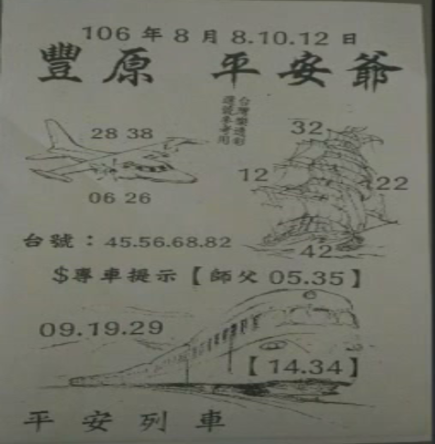 106年8月8.10.12日
豐原 平安爺
台灣製造彩
選號參考用
28 38
32
12
22
06 26
台號：45.56.68.82
42
$專車提示【師父05.35】
09.19.29
【14.34】
平安列車